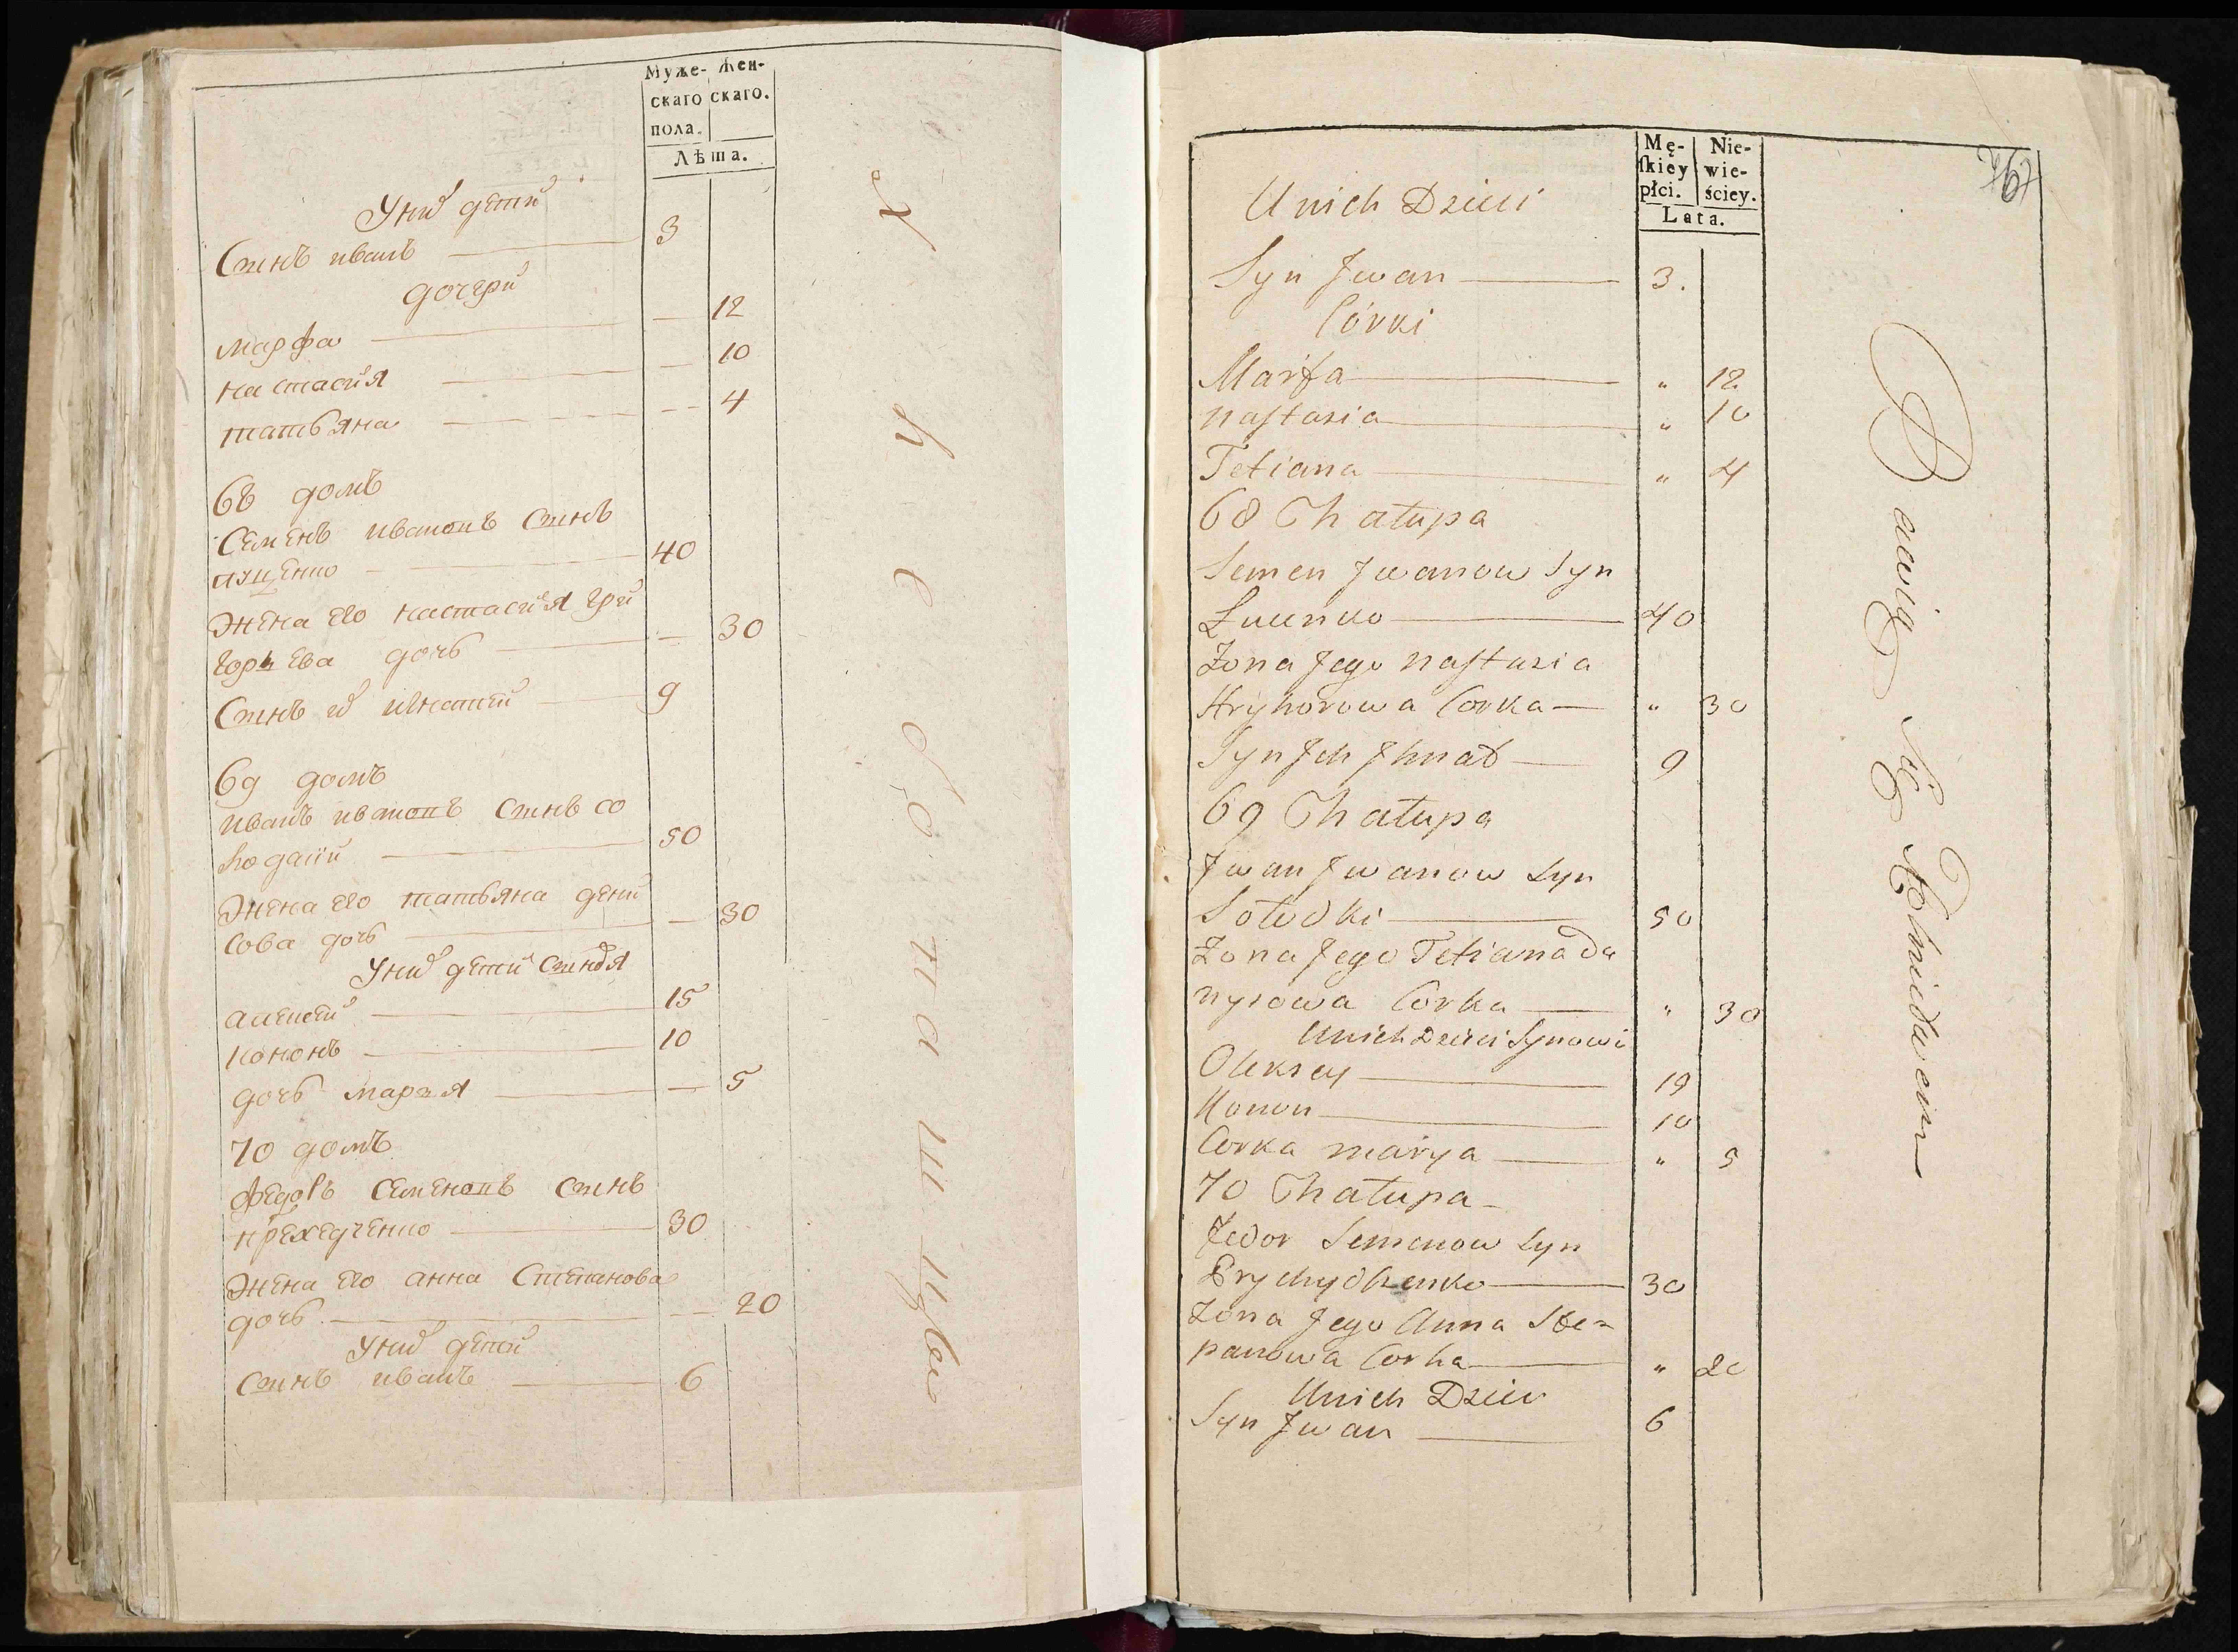 Муже- Жен-
скаго скаго.
пола.
Лѣта.
У них дѣтей
Сынъ иванъ 3
дочери
марфа — 12
настасия — 10
татьяна — 4
68 домъ
Семенъ ивановъ Сынъ
40
жена его настасия гри
горьева дочь — 30
Сынъ их игнатей 9
69 домъ
иванъ ивановъ Сынъ со
лодкий 50
жена его татьяна дени
сова дочь — 30
У них детей Сыновя
алексей 15
кононъ 10
дочь марья — 5
70 домъ
федоръ Семеновъ Сынъ
30
жена его анна Степанова
дочь — 20
У них детей
Сынъ иванъ 6
Mę- Nie-
skiey wie-
płci. ściey.
Lata.
767
U nich Dzieci
Syn Jwan 3.
Córki
Marfa " 12
Nastasia " 10
Tetiana " 4
68 Chałupa
Semen Jwanow Syn
40
Żona Jego Nastasia
Hryhorowa Corka " 30
Syn Jch Jhnat 9
69 Chałupa
Jwan Jwanow Syn
Sołodki 50
Żona Jego Tetiana Da
nysowa Corka " 30
U nich Dzieci Synowi
Oleksey 15
Konon 10
Corka marya " 5
70 Chałupa
Fedor Semenow Syn
Prychydhenko 30
Żona Jego Anna Ste=
panowa Corka " 20
U nich Dzieci
Syn Jwan 6